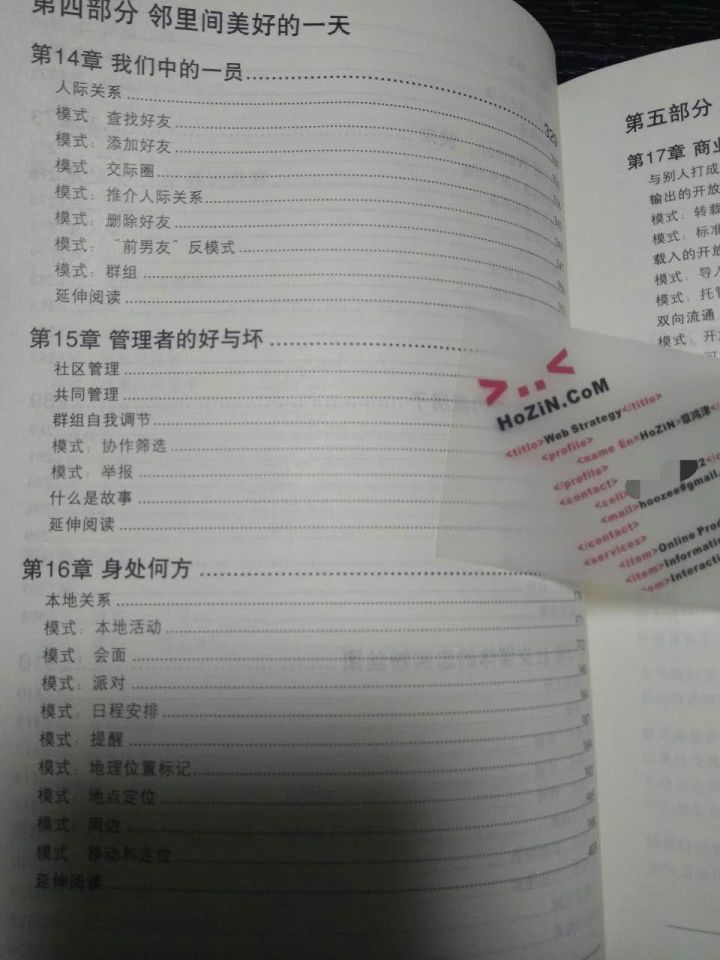 第四部分 邻里间美好的一天
第14章 我们中的一员 329
人际关系
模式：查找好友
模式：添加好友
模式：交际圈
模式：推介人际关系
模式：删除好友
模式：“前男友”反模式
模式：群组
延伸阅读
第15章 管理者的好与坏
社区管理
共同管理
群组自我调节
模式：协作筛选
模式：举报
什么是故事
延伸阅读
第16章 身处何方
本地关系
模式：本地活动
模式：会面
模式：派对
模式：日程安排
模式：提醒
模式：地理位置标记
模式：地点定位
模式：周边
模式：移动和定位
延伸阅读
第五部分
第17章 商业
与别人打成
输出的开放
模式：转载
模式：标准
载入的开放
模式：导入
模式：托管
双向流通
模式：开
>..<
HoZiN.CoM
<title>Web Strategy</title>
<profile>
<name En<HoZiN>章鸿津</
</profile>
<contact>
<cell> 2</c
<mail>hoozee#gmail.
</contact>
<services>
<item>Online Prod
<item>Informatio
<item>Interactio